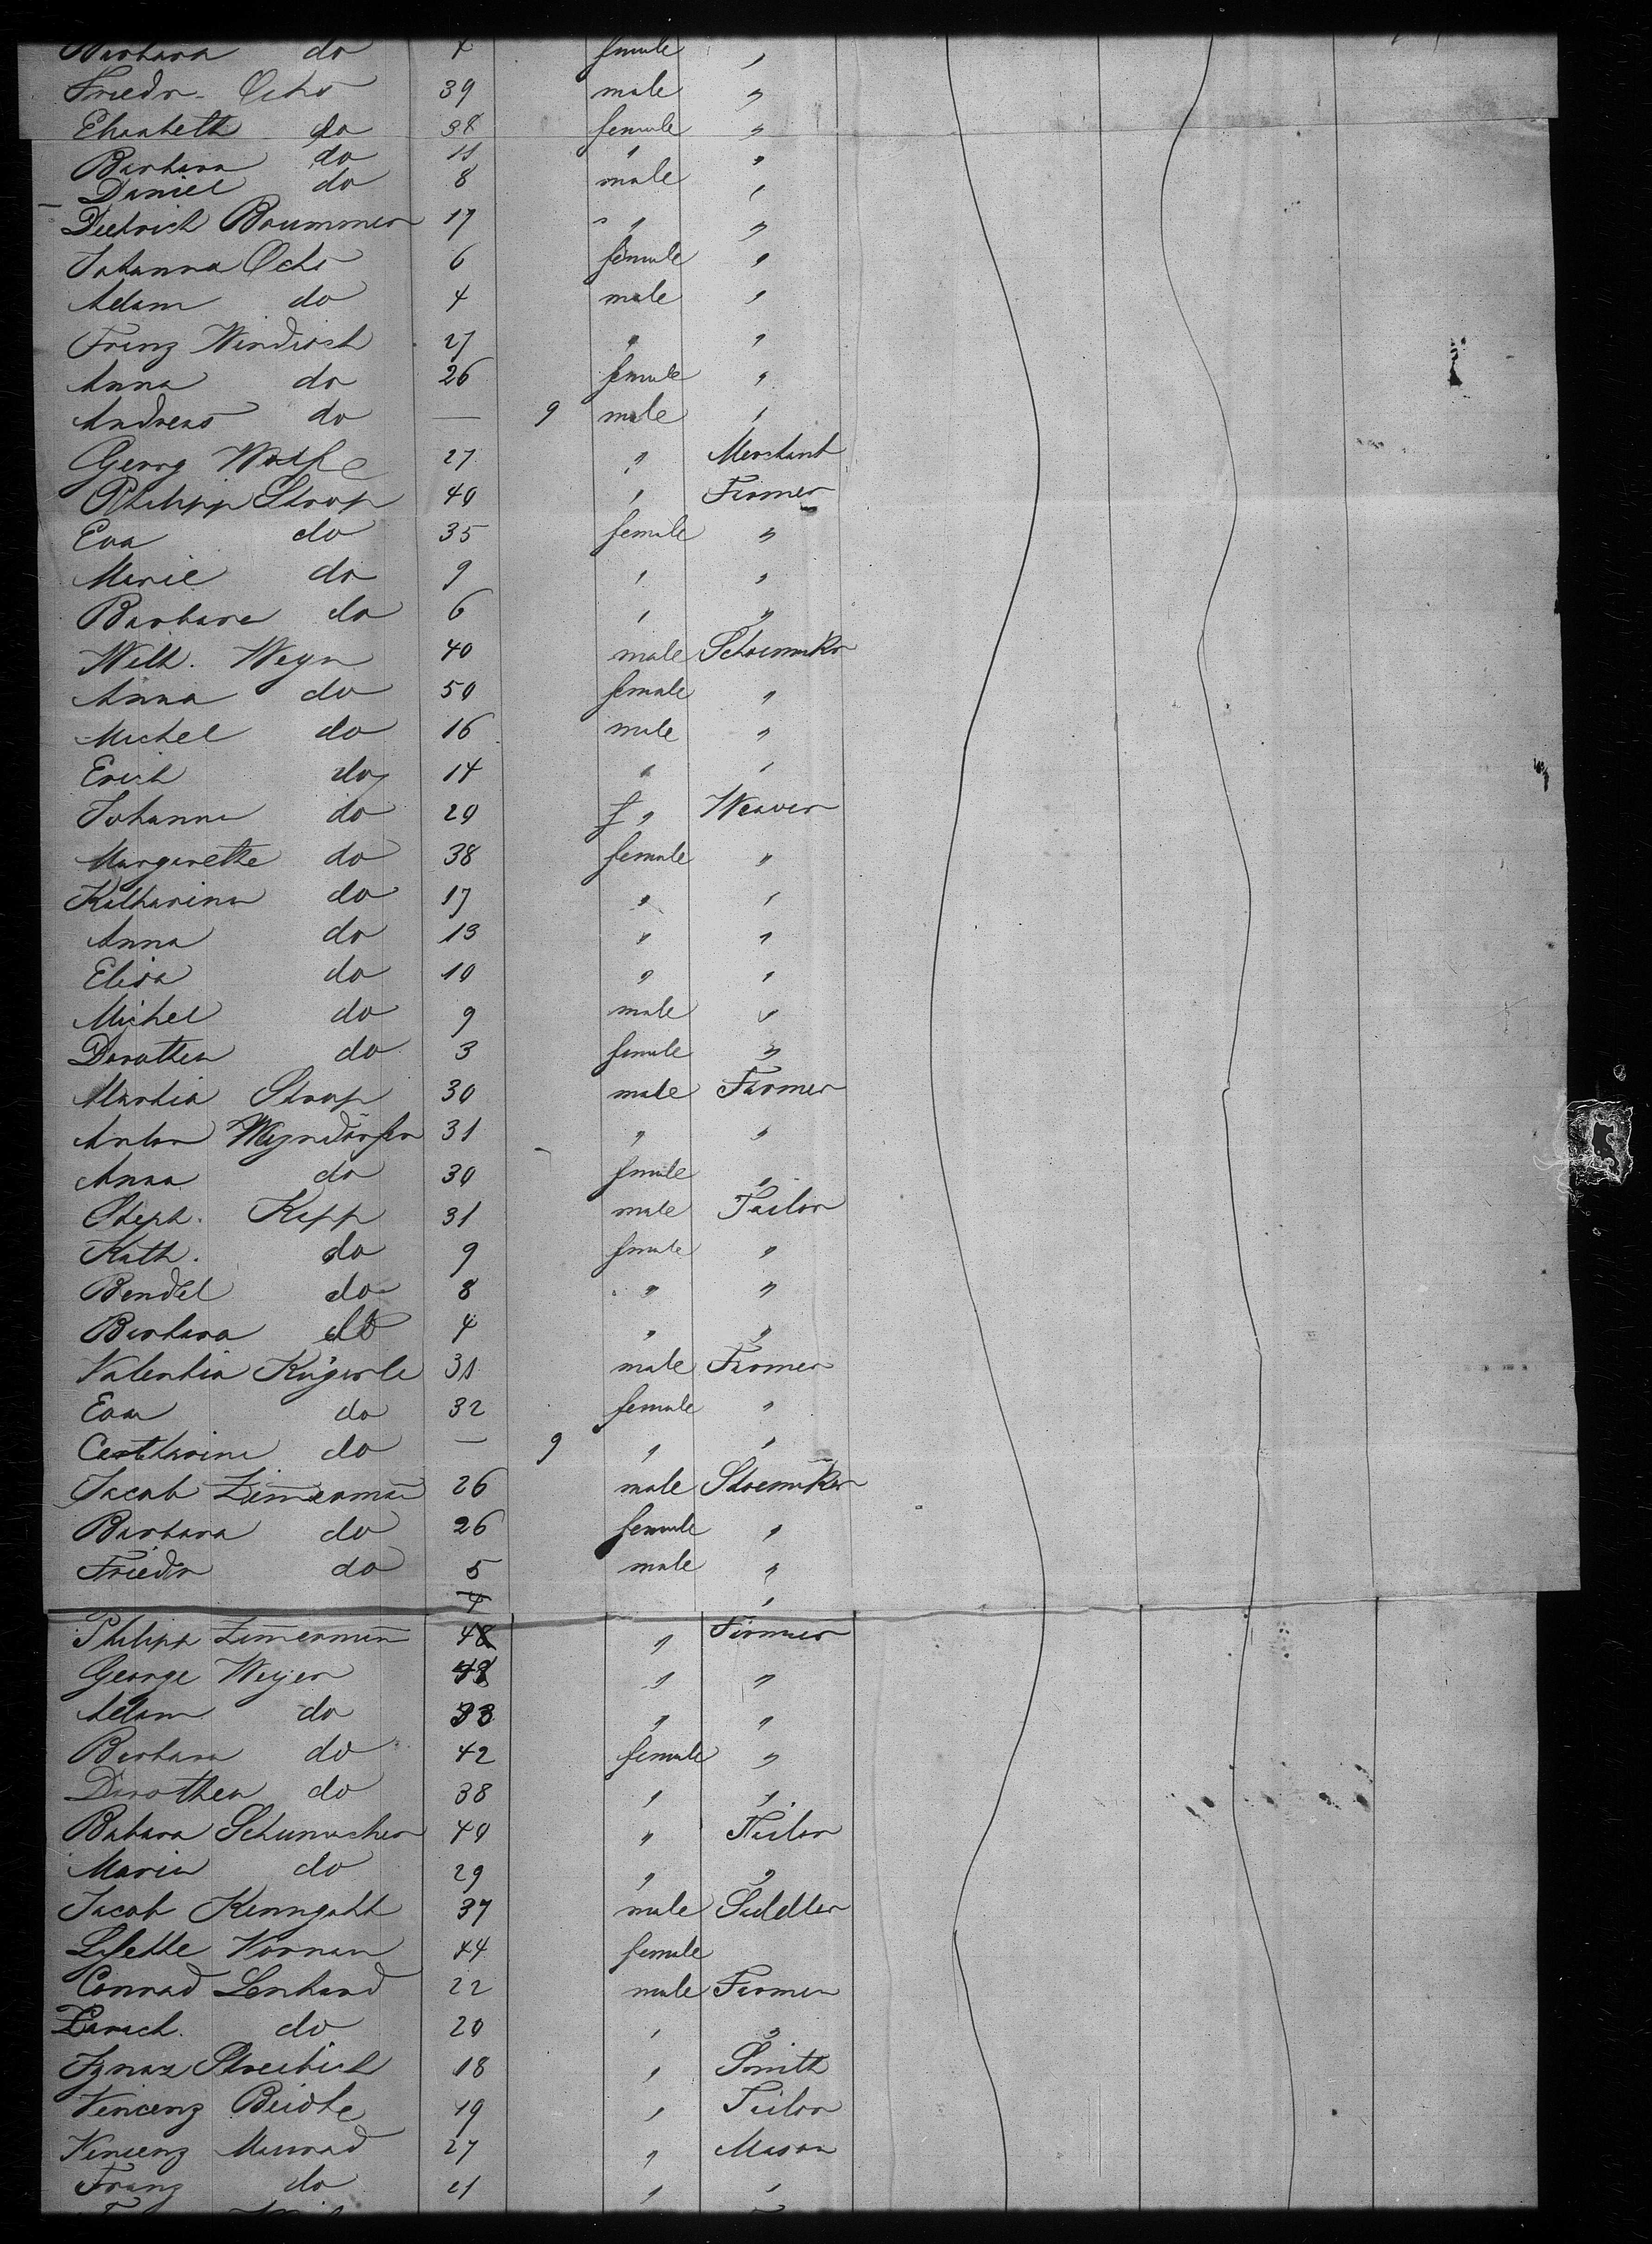 Barbara do 4 female "
Friedr. Ochs 39 male "
Elisabeth do 38 female "
Barbara do 11 " "
Daniel do 8 male "
Dietrich Brummer 17 " "
Johanna Ochs 6 female "
Adam do 4 male "
Franz Windisch 27 " "
Anna do 26 female "
Andreas do — 9 male "
Georg Wolfe 27 " Merchant
Philipp Strop 40 " Farmer
Eva do 35 female "
Marie do 9 " "
Barbara do 6 " "
Wilh. Weyn 40 male Schoemaker
Anna do 50 female "
Michel do 16 male "
Erich do 14 " "
Johanna do 20 f " Weaver
Margarethe do 38 female "
Katharina do 17 " "
Anna do 13 " "
Elisa do 10 " "
Michel do 9 male "
Dorothea do 3 female "
Martin Strop 30 male Farmer
Anton Weyndorfer 31 " "
Anna do 30 female "
Steph. Kepp 31 male Tailor
Kath. do 9 female "
Bendel do 8 " "
Barbara do 4 " "
Valentin 31 male Farmer
Eva do 32 female "
Catharina do — 9 " "
Jacob Zimerman 26 male Shoemaker
Barbara do 26 female "
Friedr do 5 male "
4 "
Philipp Zimerman 48 " Farmer
George Weyer 48 " "
Adam do 33 " "
Barbara do 42 female "
Dorothea do 38 " "
Babara Schumacher 40 " Tailor
Maria do 29 " "
Jacob Kenngott 37 male Sadeller
Lisette Vornan 44 female
Conrad Lenhard 22 male Farmer
do 20 " "
Ignaz Streibich 18 " Smith
Vincenz Beidte 19 " Tailor
Vincenz Murrad 27 " Mason
Franz do 21 " "